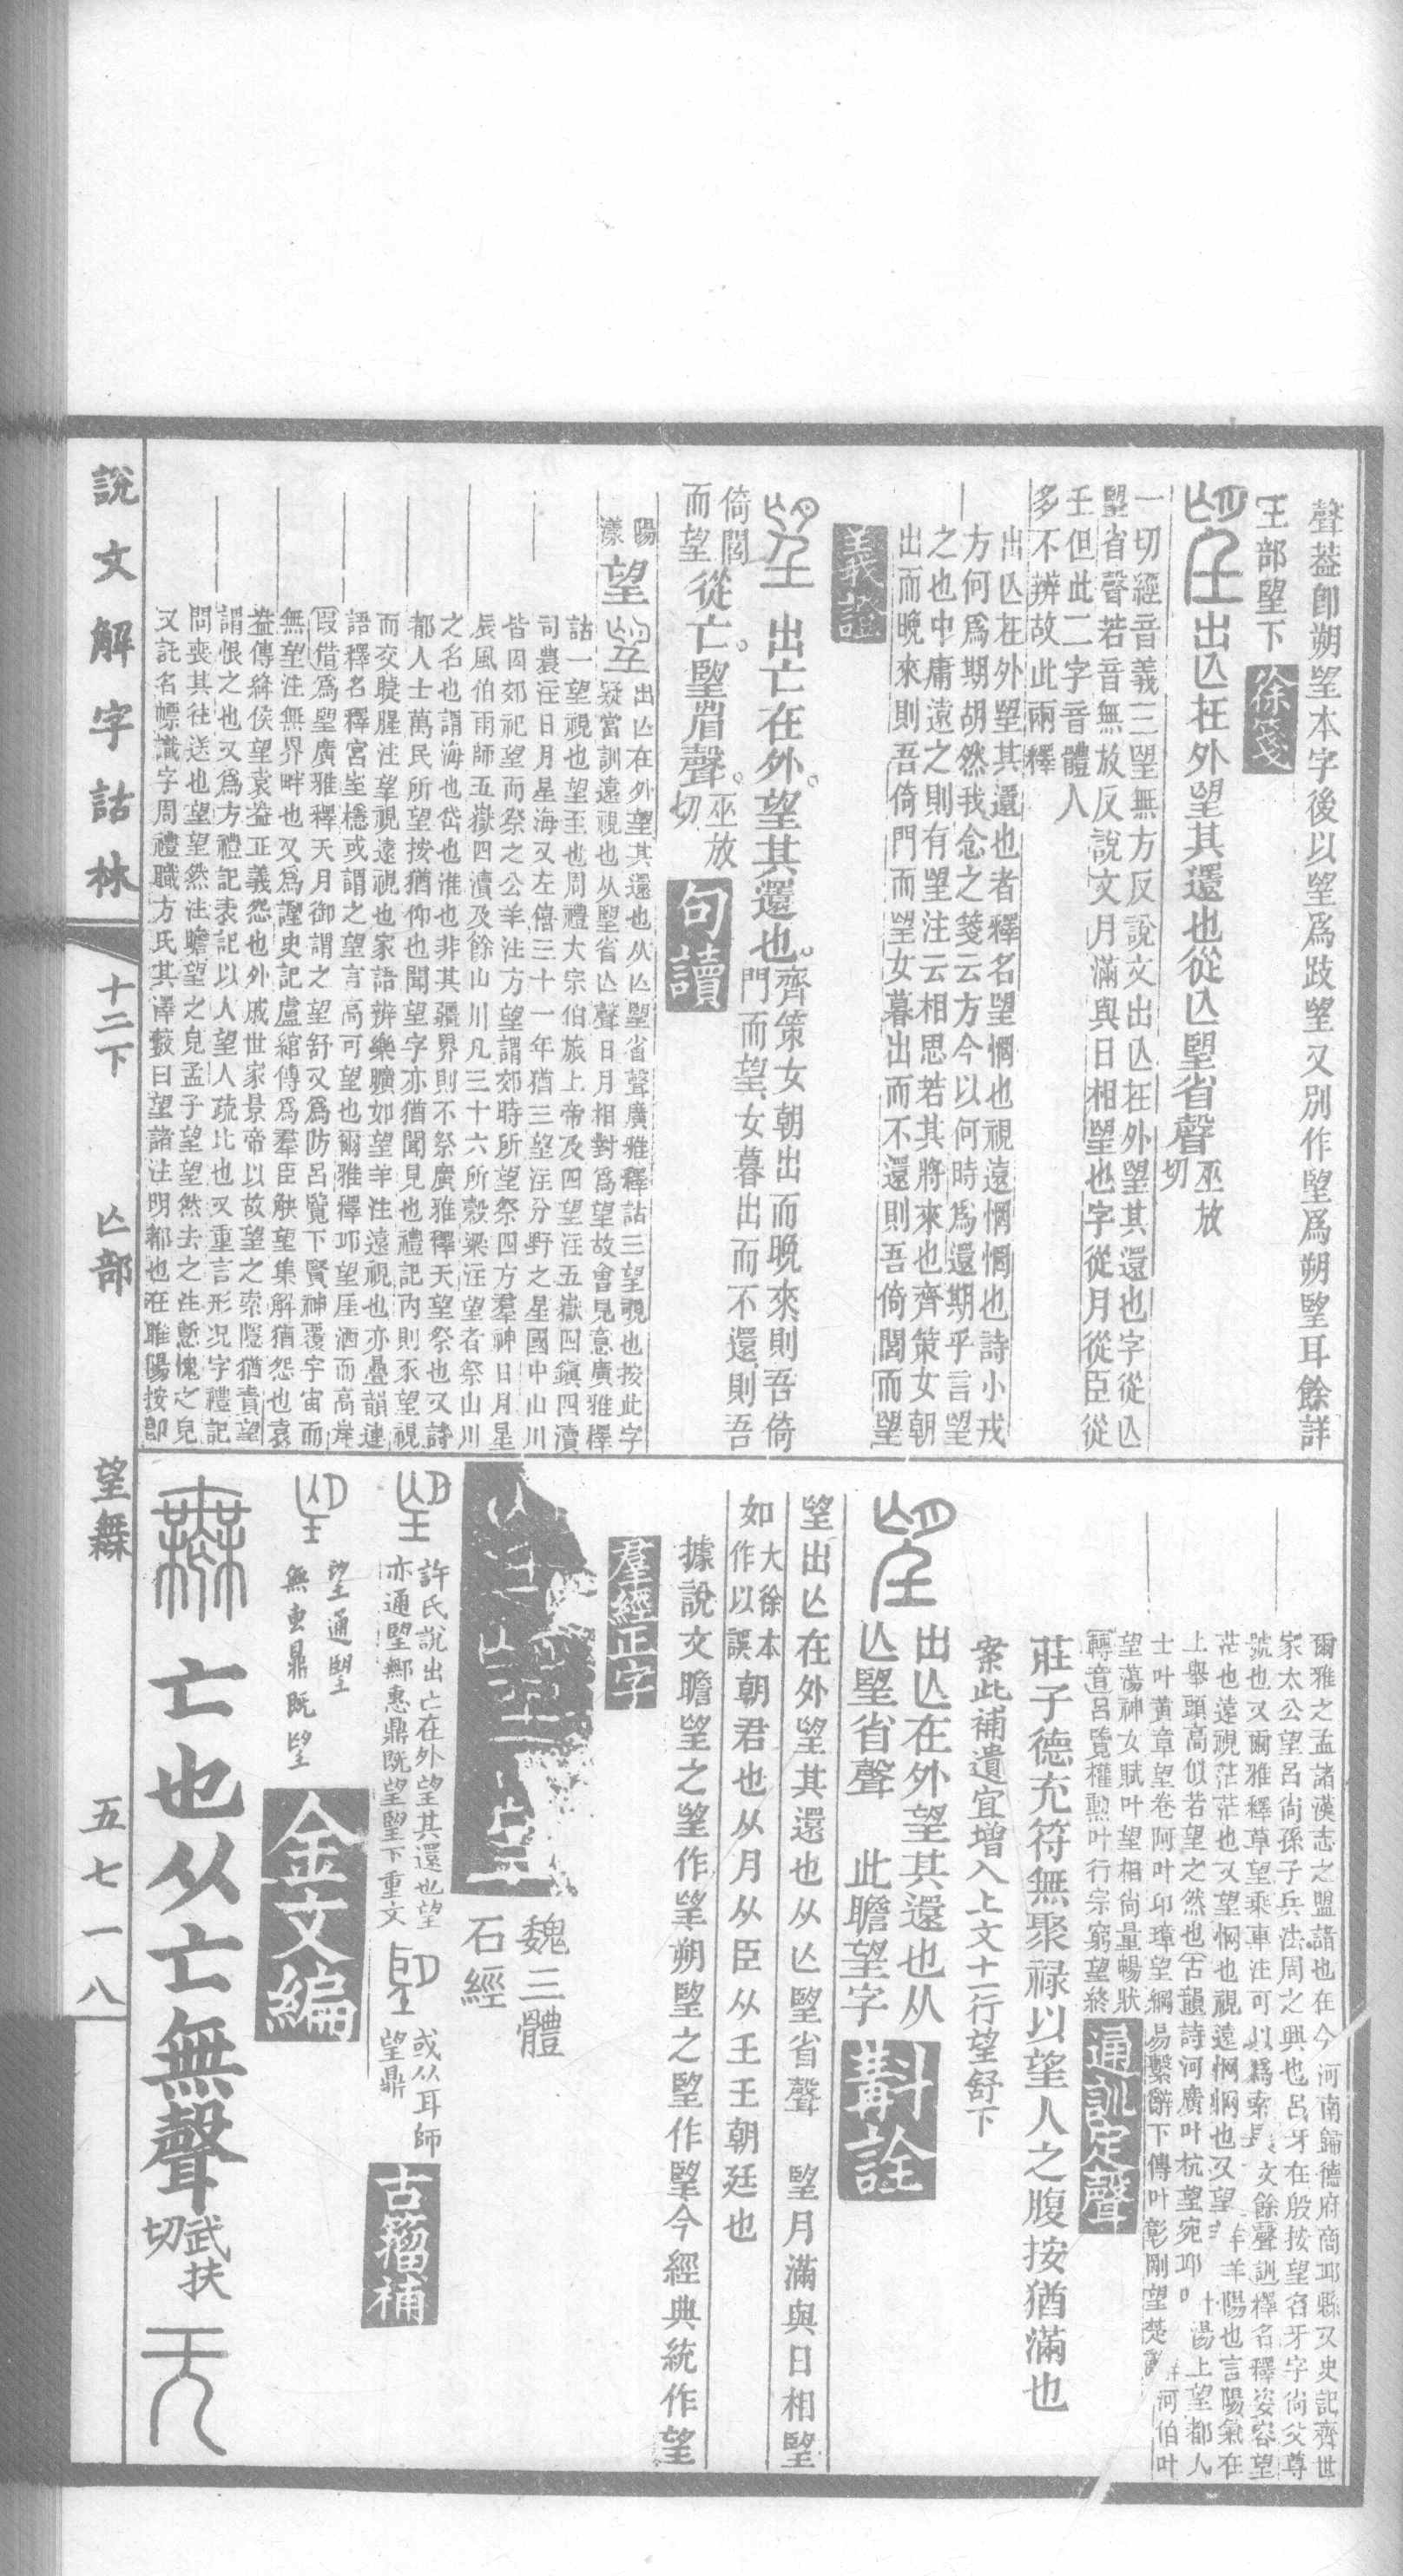 聲葢卽朔望本字後以望爲跂望又別作朢爲朔朢耳餘詳
𡈼部朢下
徐箋
出亾在外望其還也從亾朢省聲
巫放
切
一切經音義三望無方反說文出亾在外望其還也字從亾
朢省聲若音無放反說文月滿與日相朢也字從月從臣從
𡈼但此二字音體人
多不辨故此兩釋
出亾在外望其還也者釋名望惘也視遠惘惘也詩小戎
方何爲期胡然我念之箋云方今以何時爲還期乎言望
之也中庸遠之則有望注云相思若其將來也齊策女朝
出而晚來則吾倚門而望女暮出而不還則吾倚閭而望
義證
出亡在外望其還也
齊策女朝出而晚來則吾倚
門而望女暮出而不還則吾
倚閭
而望
從亡朢省聲
巫放
切
句讀
陽
漾
望
出亾在外望其還也从亾朢省聲廣雅釋詁三望視也按此字
疑當訓遠視也从朢省亾聲日月相對爲望故會見意廣雅釋
詁一望視也望至也周禮大宗伯旅上帝及四望注五嶽四鎮四瀆
司農注日月星海又左僖三十一年猶三望注分野之星國中山川
皆因郊祀望而祭之公羊注方望謂郊時所望祭四方羣神日月星
辰風伯雨師五嶽四瀆及餘山川凡三十六所穀梁注望者祭山川
之名也謂海也岱也淮也非其疆界則不祭廣雅釋天望祭也又詩
都人士萬民所望按猶仰也聞望字亦猶聞見也禮記內則豕望視
而交睫腥注望視遠視也家語辨樂曠如望羊注遠視也亦疊韻連
語釋名釋宮室㯶或謂之望言高可望也爾雅釋邱望厓洒而高岸
叚借爲朢廣雅釋天月御謂之望舒又爲防呂覽下賢神覆宇宙而
無望注無界畔也又爲謹史記盧綰傳爲羣臣觖望集解猶怨也袁
盎傳絳侯望袁盎正義怨也外戚世家景帝以故望之索隱猶責望
謂恨之也又爲方禮記表記以人望人疏比也又重言形况字禮記
問喪其往送也望望然注瞻望之皃孟子望望然去之注慙愧之皃
又託名幖識字周禮職方氏其澤藪曰望諸注明都也在睢陽按卽
爾雅之孟諸漢志之盟諸也在今河南歸德府商邱縣又史記齊世
家太公望呂尙孫子兵法周之興也呂牙在殷按望名牙字尙父尊
號也又爾雅釋草望乘車注可以爲索長文餘聲訓釋名釋姿容望
茫也遠視茫茫也又望惘也視遠惘惘也又望羊羊陽也言陽氣在
上舉頭高似若望之然也古韻詩河廣叶杭望宛邱叶湯上望都人
士叶黃章望卷阿叶卬璋望綱易繫辭下傳叶彰剛望楚河伯叶
望蕩神女賦叶望相尙量暢狀
轉音呂覽權勲叶行宗窮望終
通訓定聲
莊子德充符無聚祿以望人之腹按猶滿也
案此補遺宜增入上文十一行望舒下
出亾在外望其還也从
亾朢省聲　此瞻望字
斠詮
望出亾在外望其還也从亾朢省聲　朢月滿與日相朢
如
大徐本
作以誤
朝君也从月从臣从𡈼𡈼朝廷也
據說文瞻望之望作望朔朢之朢作朢今經典統作望
羣經正字
魏三體
石經
許氏說出亡在外望其還也望
亦通朢鄦惠鼎旣望望下重文
或从耳師
望鼎
古籀補
望通朢
無叀鼎旣望
金文編
亡也从亡無聲
武扶
切
說文解字詁林
十二下
亾部
望 𣞤
五七一八